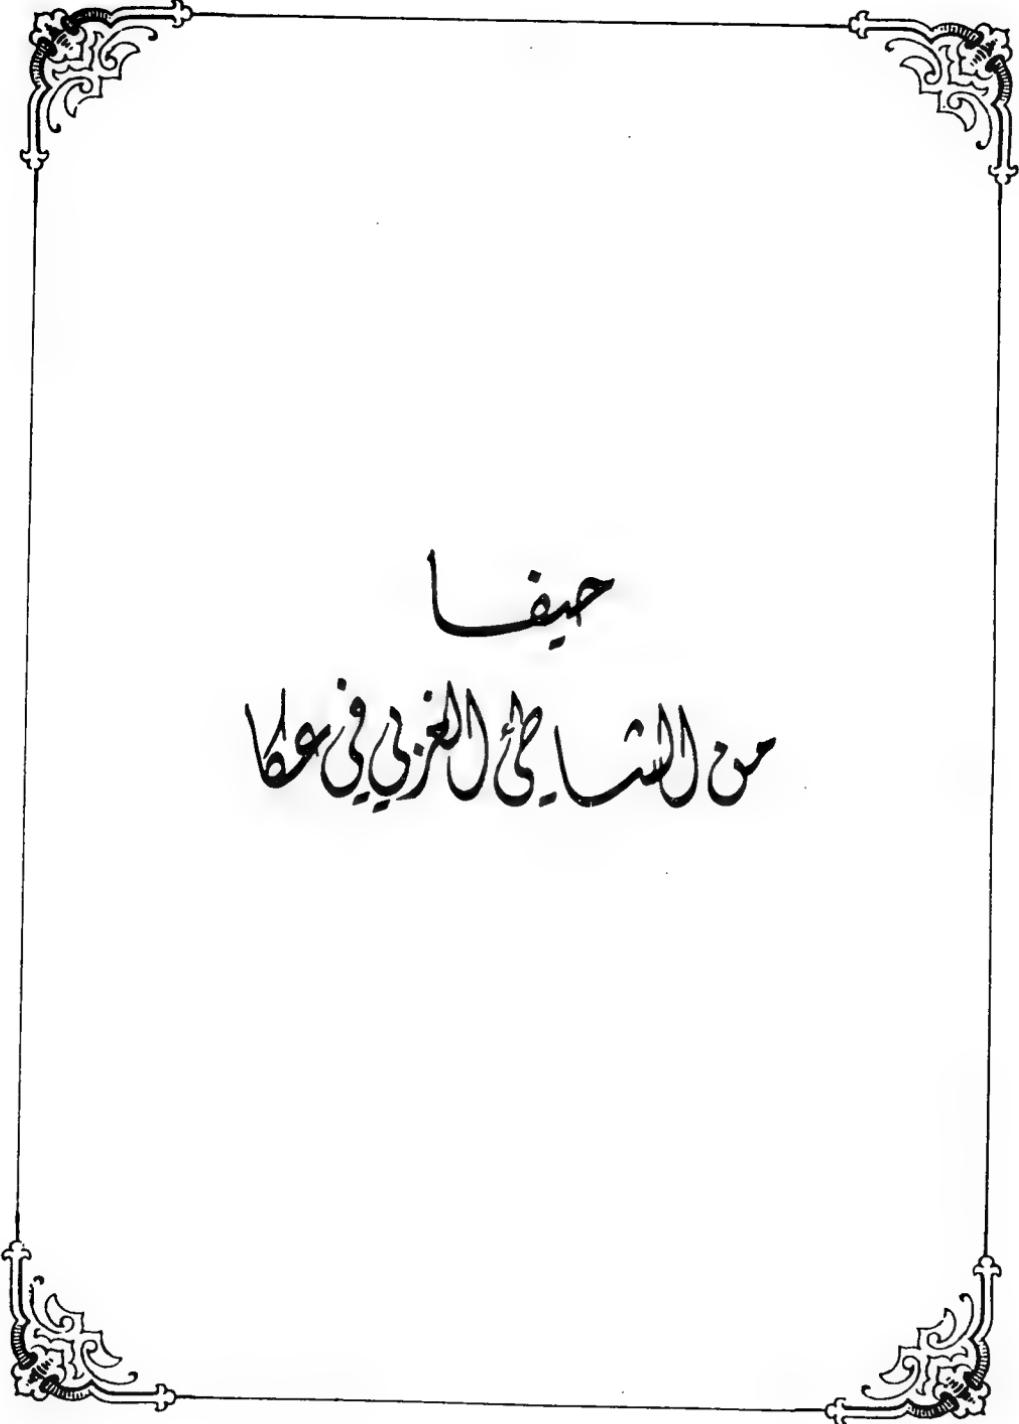 حيفا
من الشاطئ الغربي في عكا